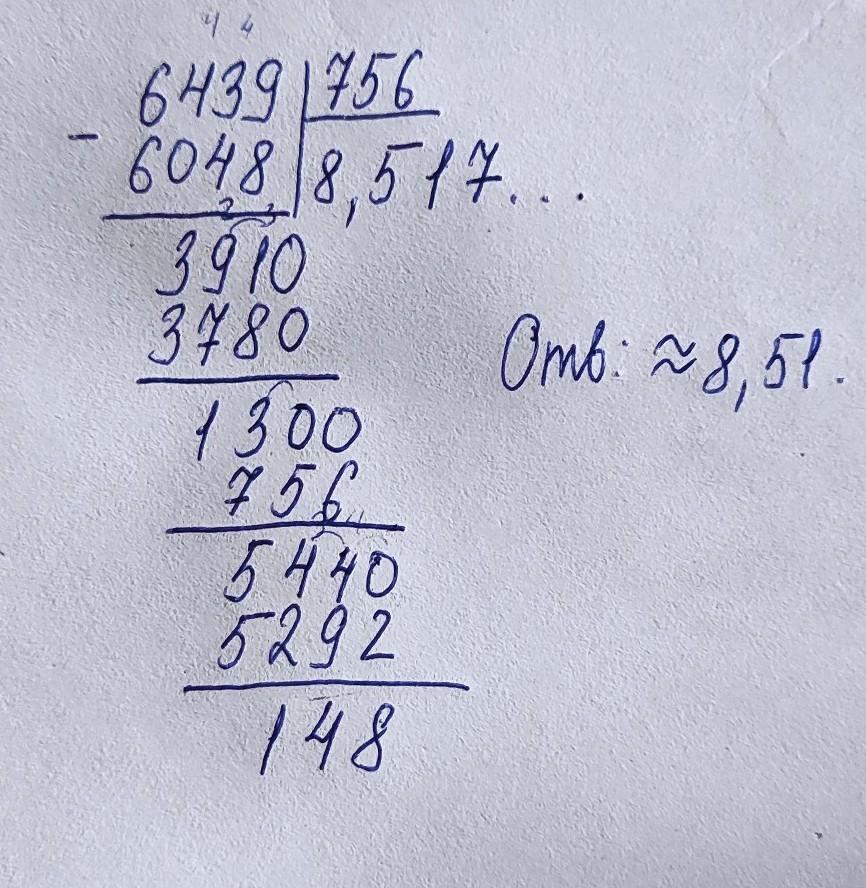 4 4
6439 756
- 6048 8,517...
3910
3780
Отв: ≈ 8,51.
1300
756
5440
5292
148